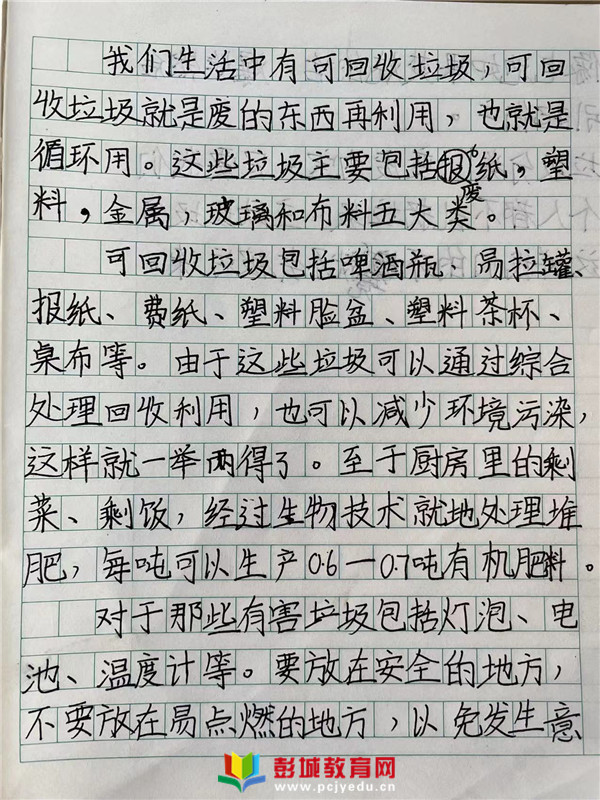 我们生活中有可回收垃圾，可回
收垃圾就是废的东西再利用，也就是
循环用。这些垃圾主要包括报纸，塑
料，金属，玻璃和布料五大类。
废
可回收垃圾包括啤酒瓶、易拉罐、
报纸、费纸、塑料脸盆、塑料茶杯、
桌布等。由于这些垃圾可以通过综合
处理回收利用，也可以减少环境污染，
这样就一举两得了。至于厨房里的剩
菜、剩饭，经过生物技术就地处理堆
肥，每吨可以生产0.6—0.7吨有机肥料。
对于那些有害垃圾包括灯泡、电
池、温度计等。要放在安全的地方，
不要放在易点燃的地方，以免发生意
彭城教育网
www.pcjyedu.cn